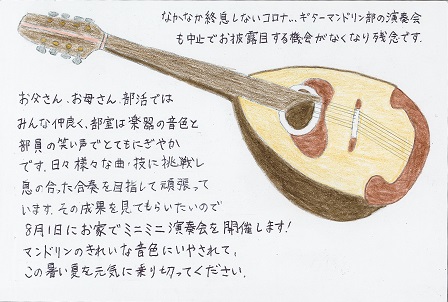 なかなか終息しないコロナ…ギターマンドリン部の演奏会
も中止でお披露目する機会がなくなり残念です。
お父さん、お母さん、部活では
みんな仲良く、部室は楽器の音色と
部員の笑い声でとてもにぎやか
です。日々様々な曲・技に挑戦し
息の合った合奏を目指して頑張って
います。その成果を見てもらいたいので
8月1日にお家でミニミニ演奏会を開催します!
マンドリンのきれいな音色にいやされて、
この暑い夏を元気に乗り切ってください。